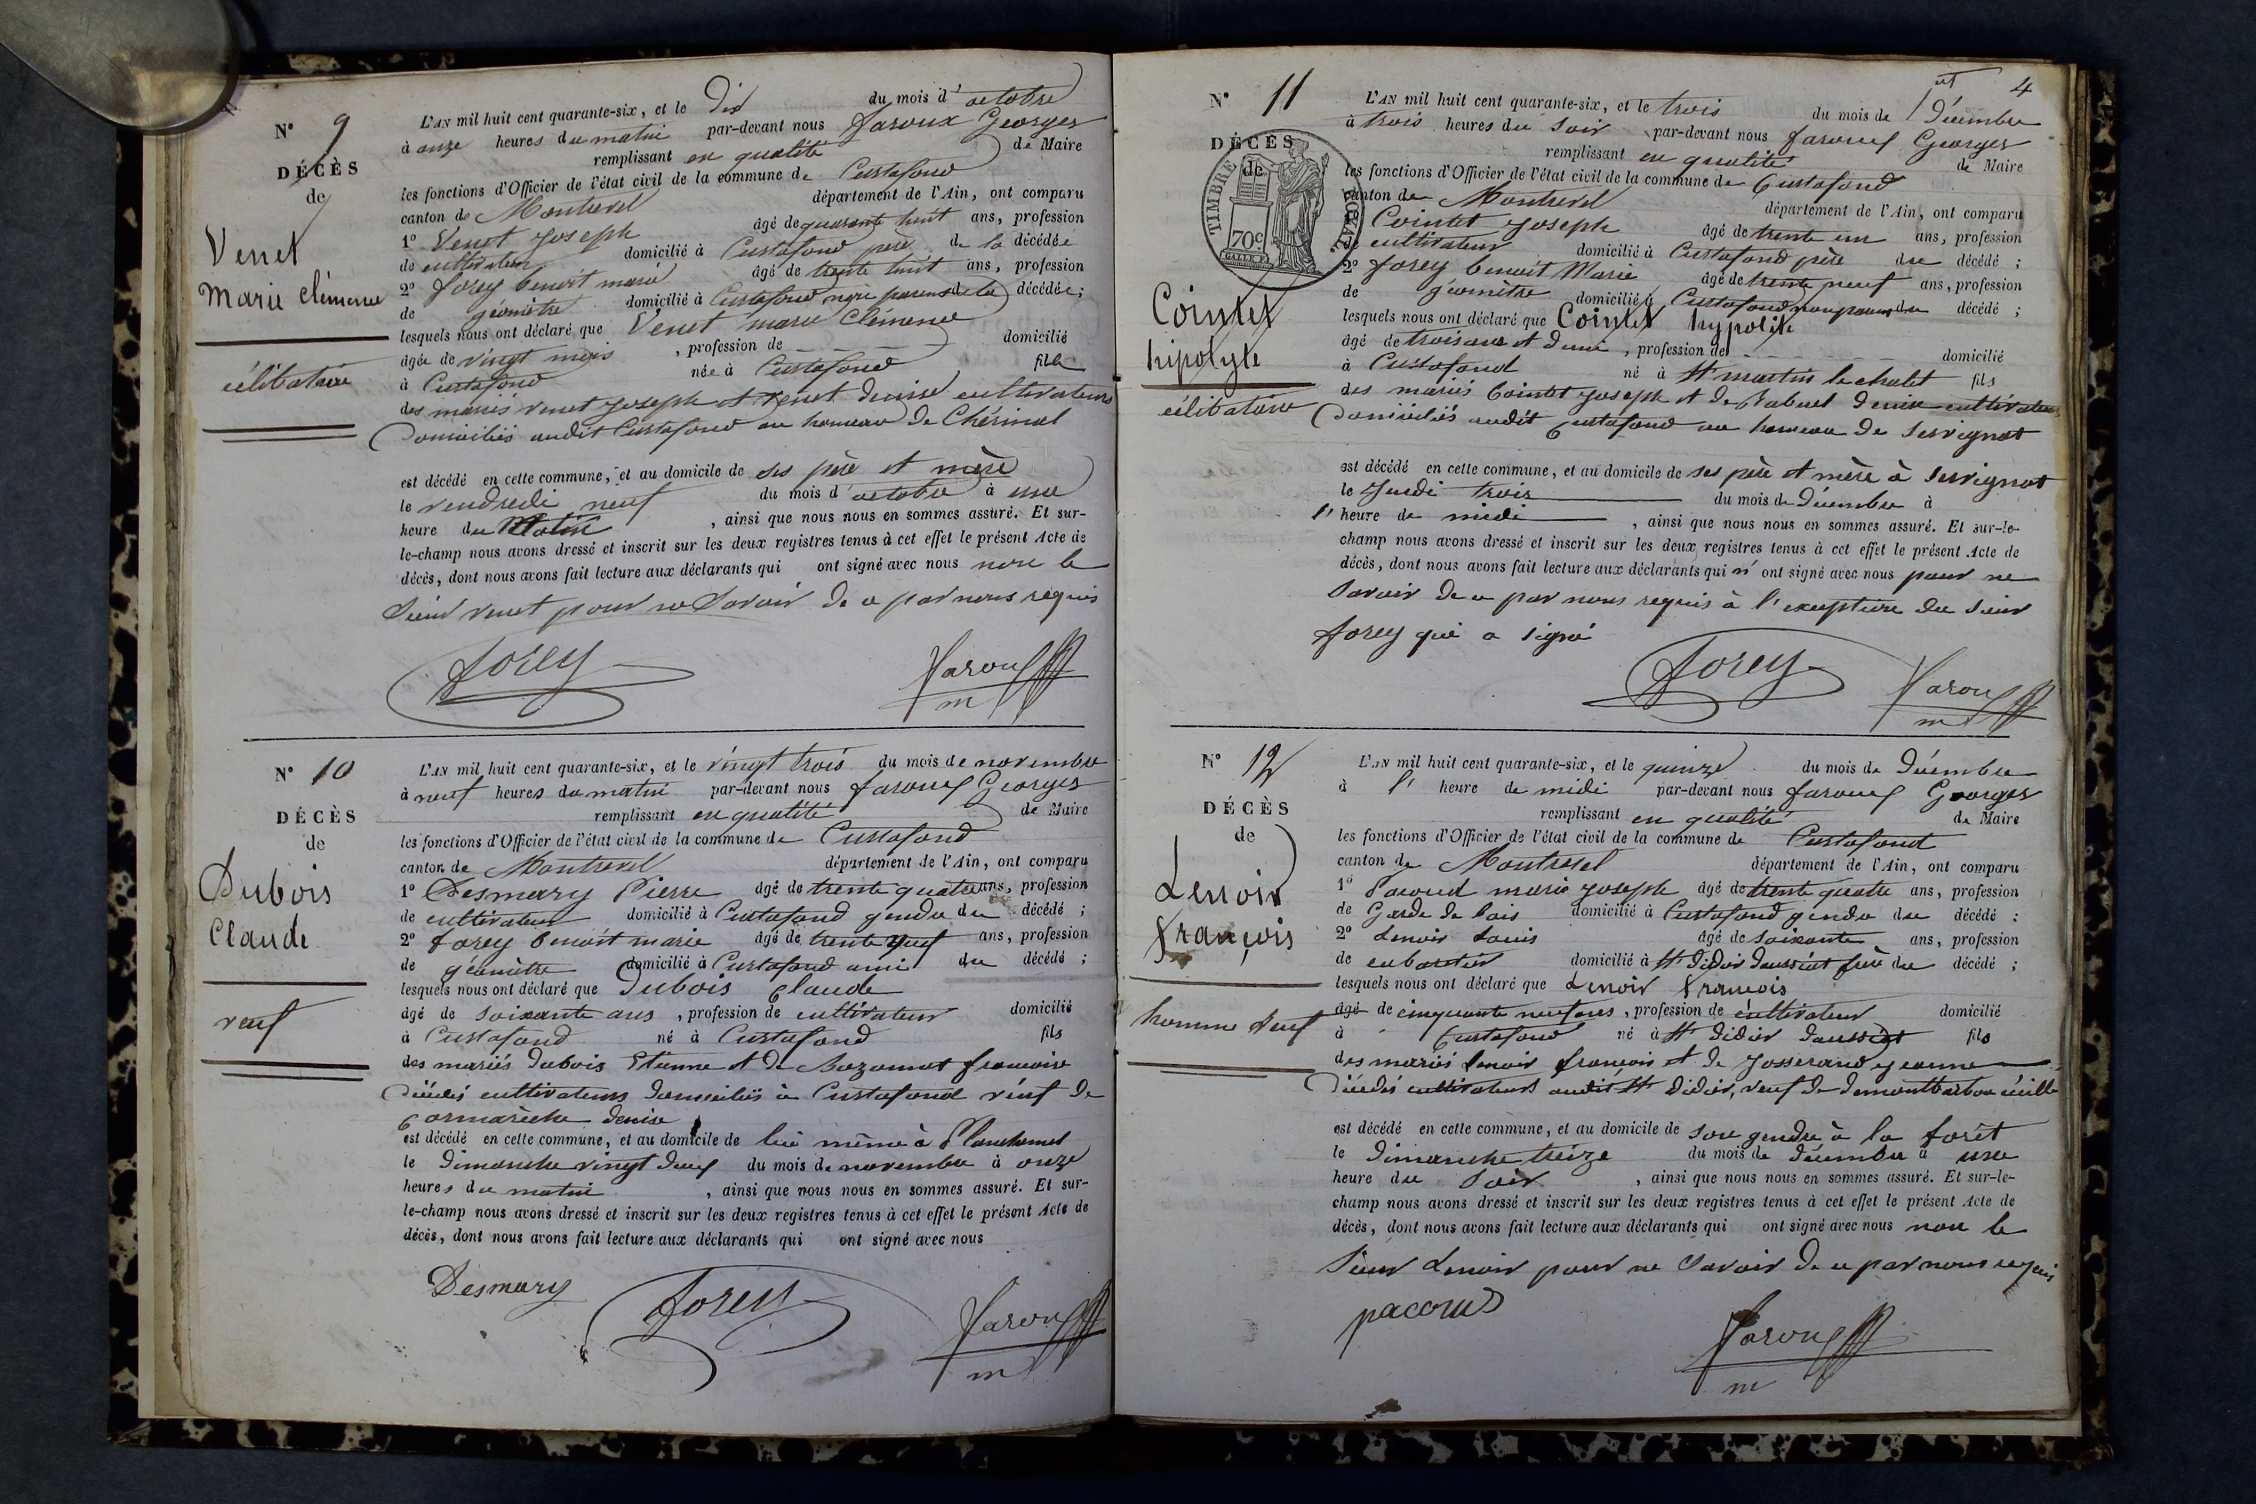 N° 9
DÉCÈS
de
Venet
Marie Clémence
célibataire
L'AN mil huit cent quarante-six, et le Dix du mois d'octobre
à onze heures du matin par-devant nous Faroux Georges
remplissant en qualité de Maire
les fonctions d'Officier de l'état civil de la commune de Curtafond
canton de Montrevel département de l'Ain, ont comparu
1° Venet Joseph âgé de quarante huit ans, profession
de cultivateur domicilié à Curtafond père de la décédée
2° Forey benoit marie âgé de trente huit ans, profession
de géomètre domicilié à Curtafond non parent de la décédée;
lesquels nous ont déclaré que Venet marie Clémence
âgée de vingt mois, profession de domicilié
à Curtafond née à Curtafond fille
des mariés venet Joseph et venet denise cultivateurs
Domiciliés audit Curtafond au hameau de Chérinal
est décédé en cette commune, et au domicile de ses père et mère
le vendredi neuf du mois d'octobre à une
heure du Matin, ainsi que nous nous en sommes assuré. Et sur-
le-champ nous avons dressé et inscrit sur les deux registres tenus à cet effet le présent Acte de
décès, dont nous avons fait lecture aux déclarants qui ont signé avec nous non le
Sieur venet pour ne Savoir de ce par nous requis
Forey Faroux
m
N° 10
DÉCÈS
de
Dubois
Claude
veuf
L'AN mil huit cent quarante-six, et le vingt trois du mois de novembre
à neuf heures du matin par-devant nous faroux Georges
remplissant en qualité de Maire
les fonctions d'Officier de l'état civil de la commune de Curtafond
canton de Montrevel département de l'Ain, ont comparu
1° Desmary Pierre âgé de trente quatre ans, profession
de cultivateur domicilié à Curtafond gendre du décédé;
2° forey benoit marie âgé de trente neuf ans, profession
de géomètre domicilié à Curtafond ami du décédé;
lesquels nous ont déclaré que Dubois Claude
âgé de soixante ans, profession de cultivateur domicilié
à Curtafond né à Curtafond fils
des mariés Dubois Etienne et de françoise
Décédés cultivateurs domiciliés à Curtafond veuf de
Cormarèche denise
est décédé en cette commune, et au domicile de lui même à
le dimanche vingt deux du mois de novembre à onze
heures du matin, ainsi que nous nous en sommes assuré. Et sur-
le-champ nous avons dressé et inscrit sur les deux registres tenus à cet effet le présent Acte de
décès, dont nous avons fait lecture aux déclarants qui ont signé avec nous
Desmary Forey Faroux
m
4
N° 11
DÉCÈS
de
TIMBRE ROYAL
70c
Cointet
hipolyte
célibataire
L'AN mil huit cent quarante-six, et le trois du mois de Décembre
à trois heures du soir par-devant nous faroux Georges
remplissant en qualité de Maire
les fonctions d'Officier de l'état civil de la commune de Curtafond
canton de Montrevel département de l'Ain, ont comparu
Cointet Joseph âgé de trente un ans, profession
de cultivateur domicilié à Curtafond père du décédé;
2° forey benoit Marie âgé de trente neuf ans, profession
de géomètre domicilié à Curtafond non parent du décédé;
lesquels nous ont déclaré que Cointet hypolite
âgé de trois ans et demi, profession de domicilié
à Curtafond né à St martin le chatel fils
des mariés Cointet joseph et de Rabuel denise cultivateurs
Domiciliés audit Curtafond au hameau de Servignat
est décédé en cette commune, et au domicile de ses père et mère à Servignat
le Jeudi trois du mois de Décembre à
l'heure de midi, ainsi que nous nous en sommes assuré. Et sur-le-
champ nous avons dressé et inscrit sur les deux registres tenus à cet effet le présent Acte de
décès, dont nous avons fait lecture aux déclarants qui n'ont signé avec nous pour ne
Savoir de ce par nous requis à l'exception du sieur
forey qui a signé
Forey Faroux
m
N° 12
DÉCÈS
de
Lenoir
François
homme veuf
L'AN mil huit cent quarante-six, et le quinze du mois de Décembre
à l'heure de midi par-devant nous faroux Georges
remplissant en qualité de Maire
les fonctions d'Officier de l'état civil de la commune de Curtafond
canton de Montrevel département de l'Ain, ont comparu
1° Pacoud marie joseph âgé de trente quatre ans, profession
de Garde de bois domicilié à Curtafond gendre du décédé:
2° Lenoir Louis âgé de soixante ans, profession
de domicilié à St didier daussiat frère du décédé;
lesquels nous ont déclaré que Lenoir françois
âgé de cinquante neuf ans, profession de cultivateur domicilié
à Curtafond né à St didier daussiat fils
des mariés Lenoir françois et de Josserand jeanne
Décédés cultivateurs audit St Didier, veuf de
est décédé en cette commune, et au domicile de son gendre à la forêt
le dimanche treize du mois de décembre à une
heure du Soir, ainsi que nous nous en sommes assuré. Et sur-le-
champ nous avons dressé et inscrit sur les deux registres tenus à cet effet le présent Acte de
décès, dont nous avons fait lecture aux déclarants qui ont signé avec nous non le
Sieur Lenoir pour ne Savoir de ce par nous requis
pacoud Faroux
m